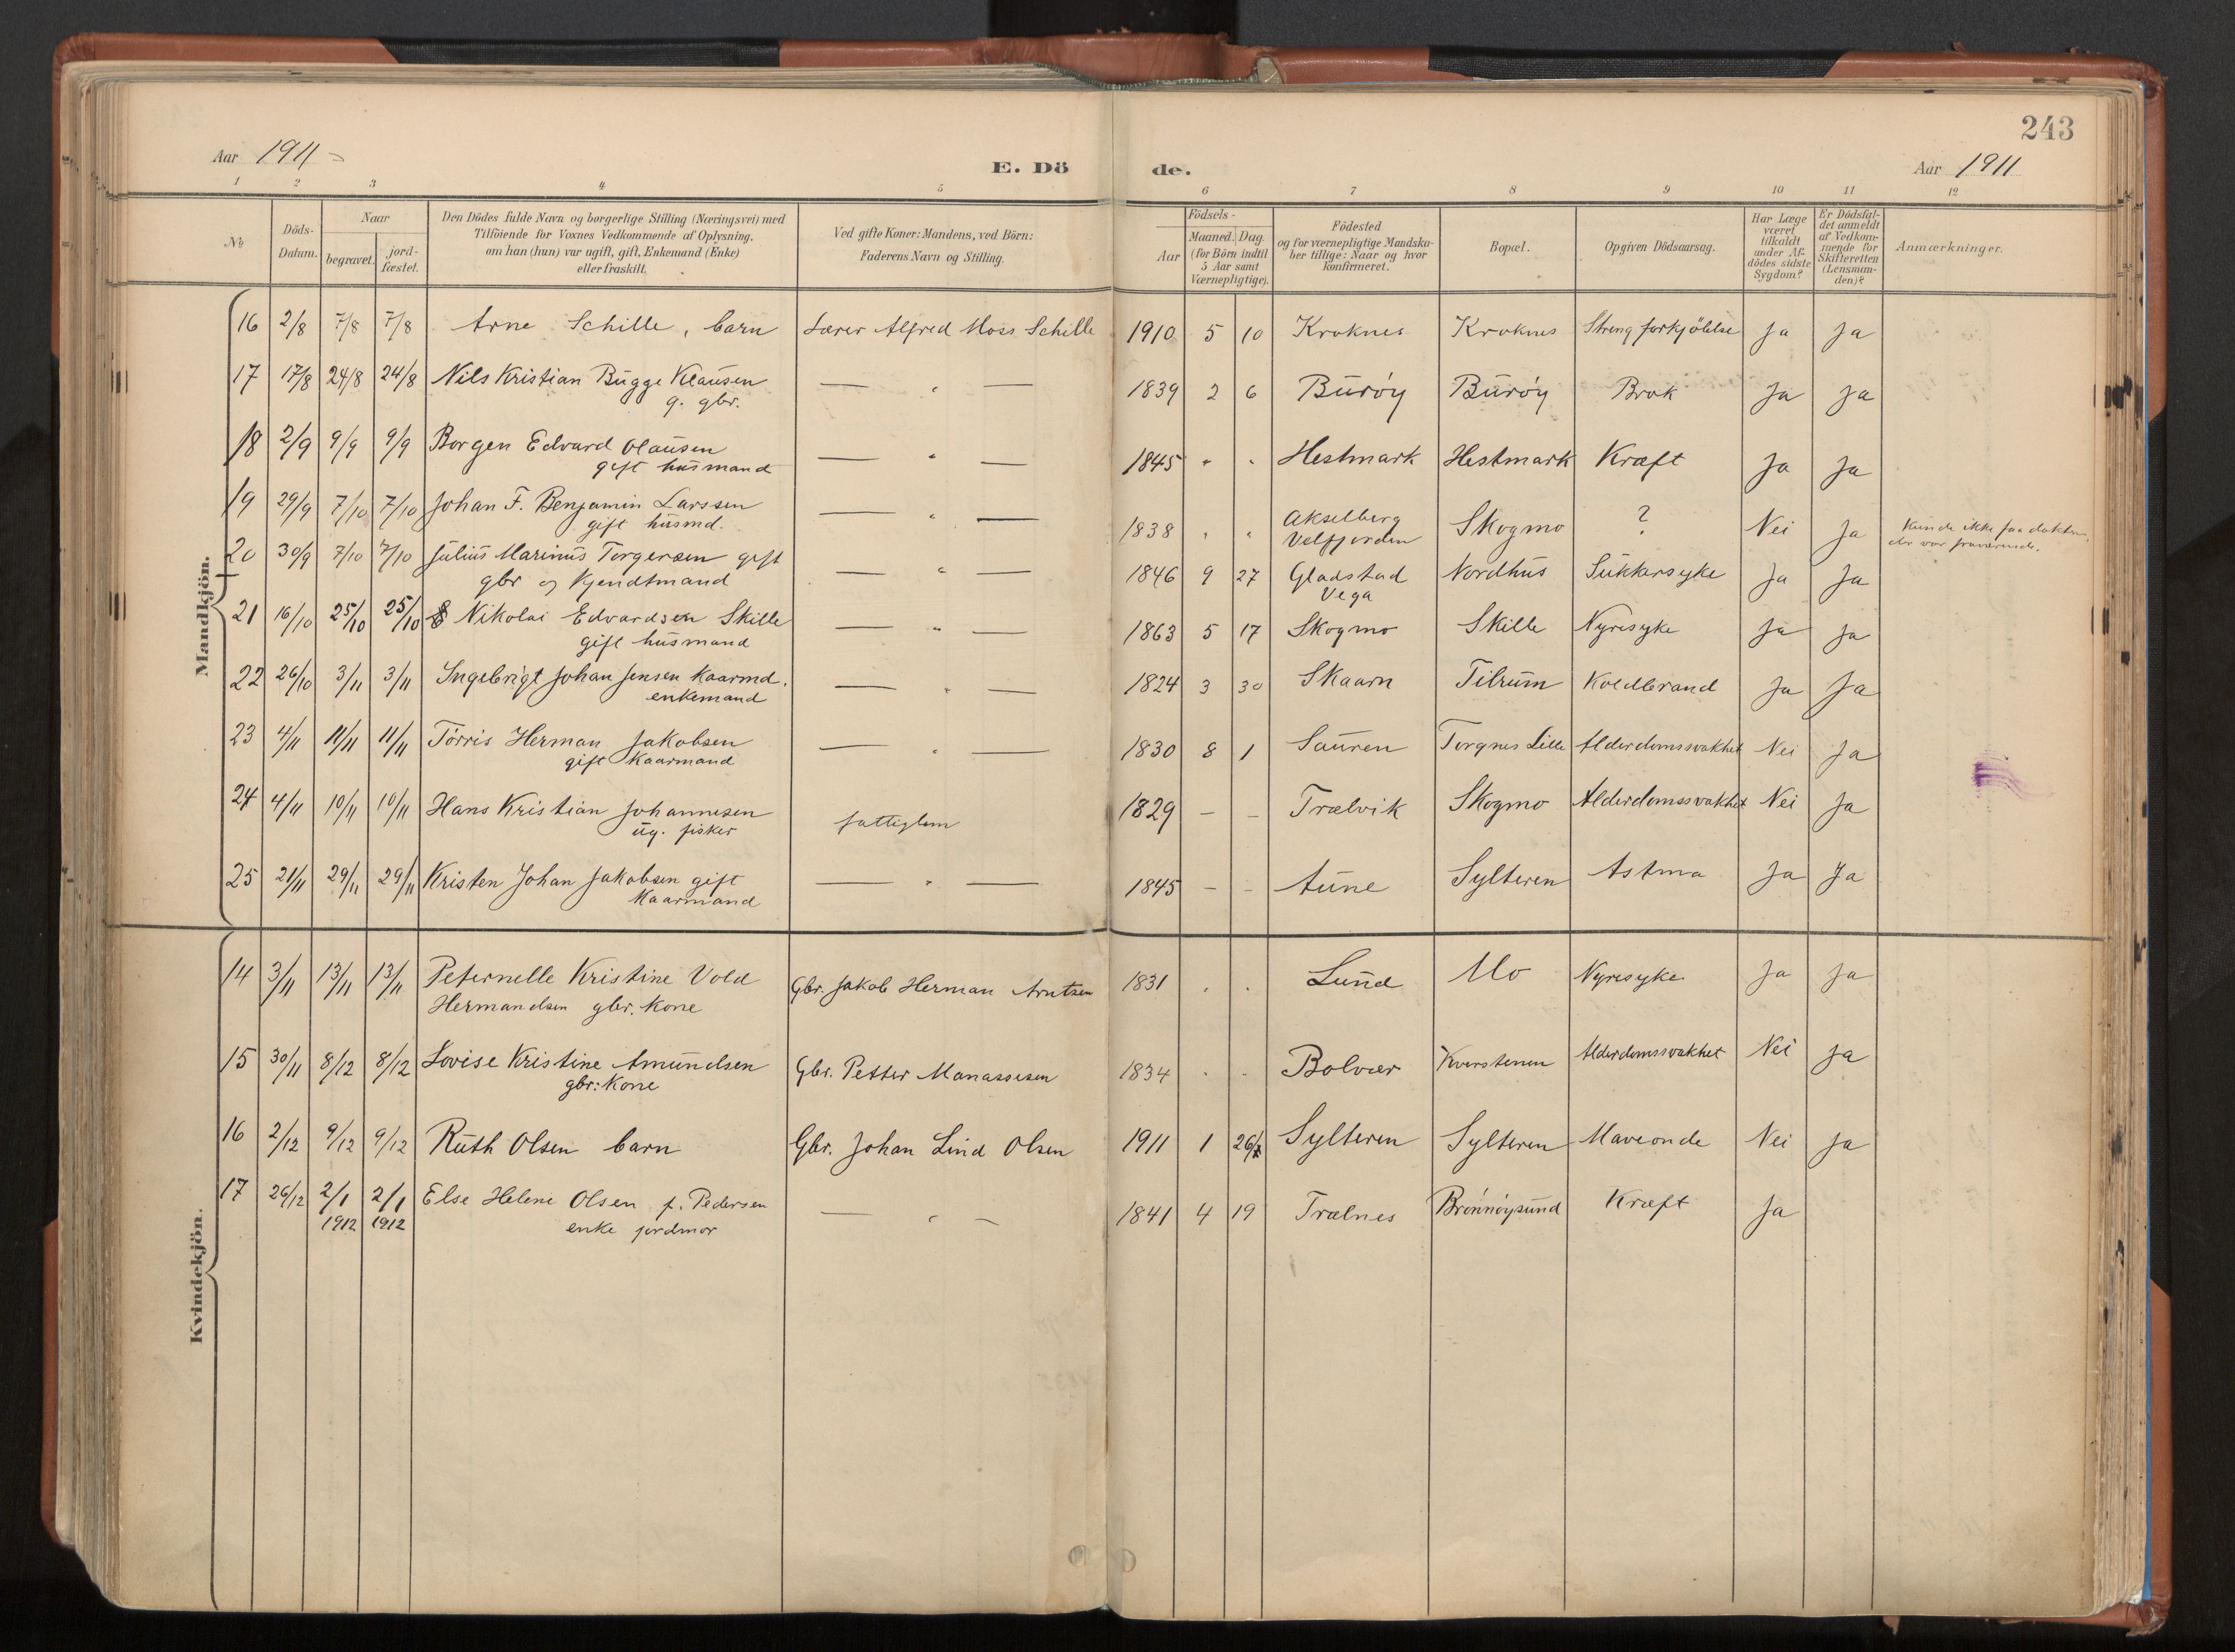 243
Aar 1911
E. Döde.
Aar 1911
1 2 3 4 5 6 7 8 9 10 11 12
No
Döds-Datum.
Naar
begravet.
jord-fæstet.
Den Dödes fulde Navn og borgerlige Stilling (Næringsvei) med
Tilföiende for Voxnes Vedkommende af Oplysning.
om han (hun) var ugift, gift, Enkemand (Enke)
eller fraskilt.
Ved gifte Koner: Mandens, ved Börn:
Faderens Navn og Stilling.
Födsels-
Aar
Maaned. Dag.
(for Börn indtil
5 Aar samt
Værnepligtige).
Födested
og for værnepligtige Mandska-
ber tillige: Naar og hvor
konfirmeret.
Bopæl.
Opgiven Dödsaarsag.
Har Læge
været
tilkaldt
under Af-
dödes sidste
Sygdom?
Er Dödsfal-
det anmeldt
af Vedkom-
mende for
Skifteretten
(Lensman-
den)?
Anmærkninger.
Mandkjön.
16 2/8 7/8 7/8 Arne Schille, barn Lærer Alfred Moss Schille 1910 5 10 Kroknes Kroknes Streng forkjölelse Ja Ja
17 17/8 24/8 24/8 Nils Kristian Bugge Klausen — " — 1839 2 6 Buröy Buröy Brok Ja Ja
g. gbr.
18 2/9 9/9 9/9 Borgen Edvard Olausen — " — 1845 " " Hestmark Hestmark Kræft Ja Ja
gift husmand
19 29/9 7/10 7/10 Johan F. Benjamin Larssen — " — 1838 " " Akselberg Skogmo ? Nei Ja Kunde ikke faa doktor,
gift husmd. Velfjorden der var fraværende.
20 30/9 7/10 7/10 Julius Marinus Torgersen gift — " — 1846 9 27 Gladstad Nordhus Sukkersyke Ja Ja
gbr og Kjendtmand Vega
21 16/10 25/10 25/10 Nikolai Edvardsen Skille — " — 1863 5 17 Skogmo Skille Nyresyke Ja Ja
gift husmand
22 26/10 3/11 3/11 Ingebrigt Johan Jensen Kaarmd. — " — 1824 3 30 Skaarn Tilrum Koldbrand Ja Ja
enkemand
23 4/11 11/11 11/11 Törris Herman Jakobsen — " — 1830 8 1 Sauren Torgnes Lille Alderdomssvakhet Nei Ja
gift Kaarmand
24 4/11 10/11 10/11 Hans Kristian Johannesen fattiglem 1829 — — Trælvik Skogmo Alderdomssvakhet Nei Ja
ug. fisker
25 21/11 29/11 29/11 Kristen Johan Jakobsen gift — " — 1845 — — Aune Sylteren Astma Ja Ja
Kaarmand
Kvindekjön.
14 3/11 13/11 13/11 Peternelle Kristine Vold Gbr. Jakob Herman Arntsen 1831 . . Lund Mo Nyresyke Ja Ja
Hermandsen gbr. Kone
15 30/11 8/12 8/12 Lovise Kristine Amundsen Gbr. Petter Manassesen 1834 . . Bolvær Kverstenen Alderdomssvakhet Nei Ja
gbr: Kone
16 2/12 9/12 9/12 Ruth Olsen barn Gbr. Johan Lind Olsen 1911 1 26 Sylteren Sylteren Maveonde Nei Ja
17 26/12 2/1 2/1 Else Helene Olsen f. Pedersen — " — 1841 4 19 Trælnes Brönnöysund Kræft Ja
1912 1912 enke jordmor